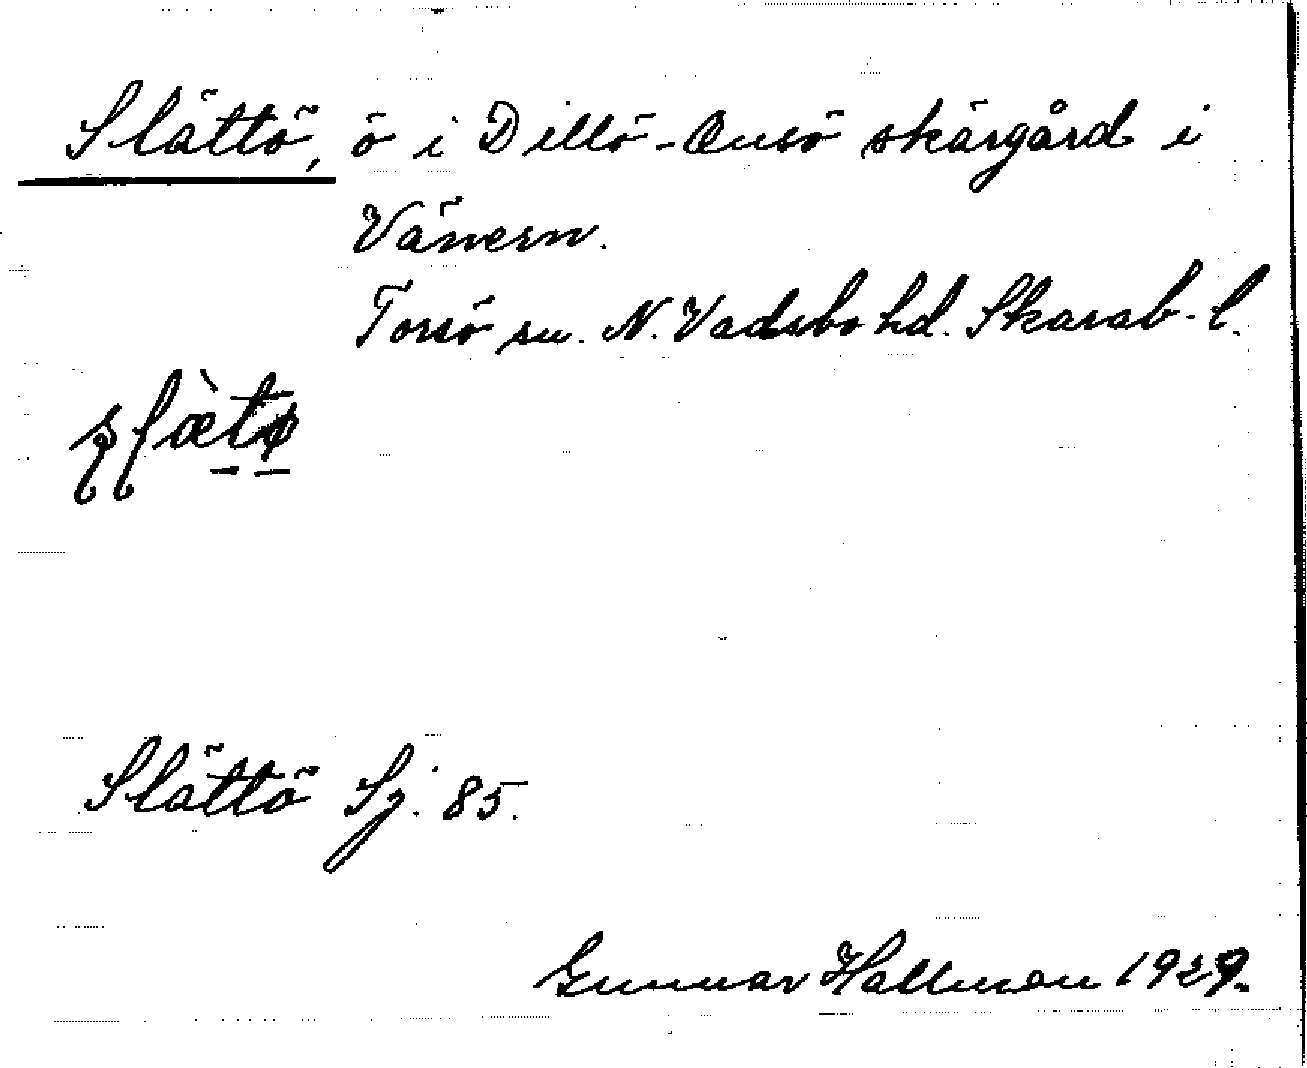 Slättö, ö i Dillö-Onsö skärgård i
Vänern.
Torsö sn. N. Vadsbo hd. Skarab. l.
Slättö Sj. 85.
Gunnar Hallman 1929.